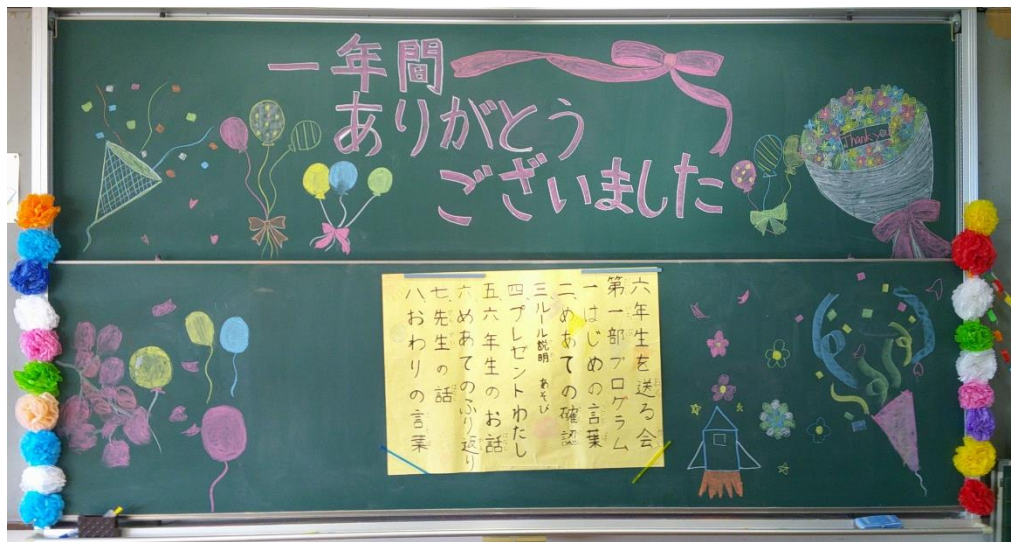 一年間
ありがとう
ございました
Thank you
六年生を送る会
第一部プログラム
一はじめの言葉
二、めあての確認
三ルール説明 あそび
四プレゼントわたし
五六年生のお話
六めあてのふり返り
七先生の話
八、おわりの言葉